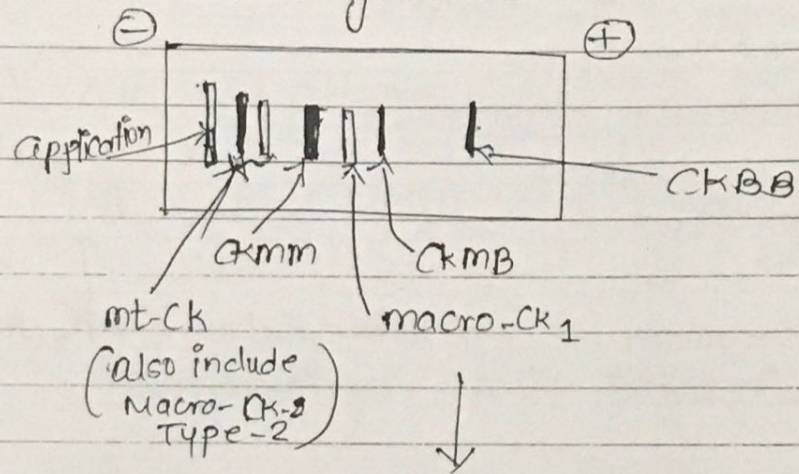 ⊖ ⊕
application
CKBB
CKMM CKMB
mt-CK macro-CK1
(also include
Macro-CK-2
Type-2)